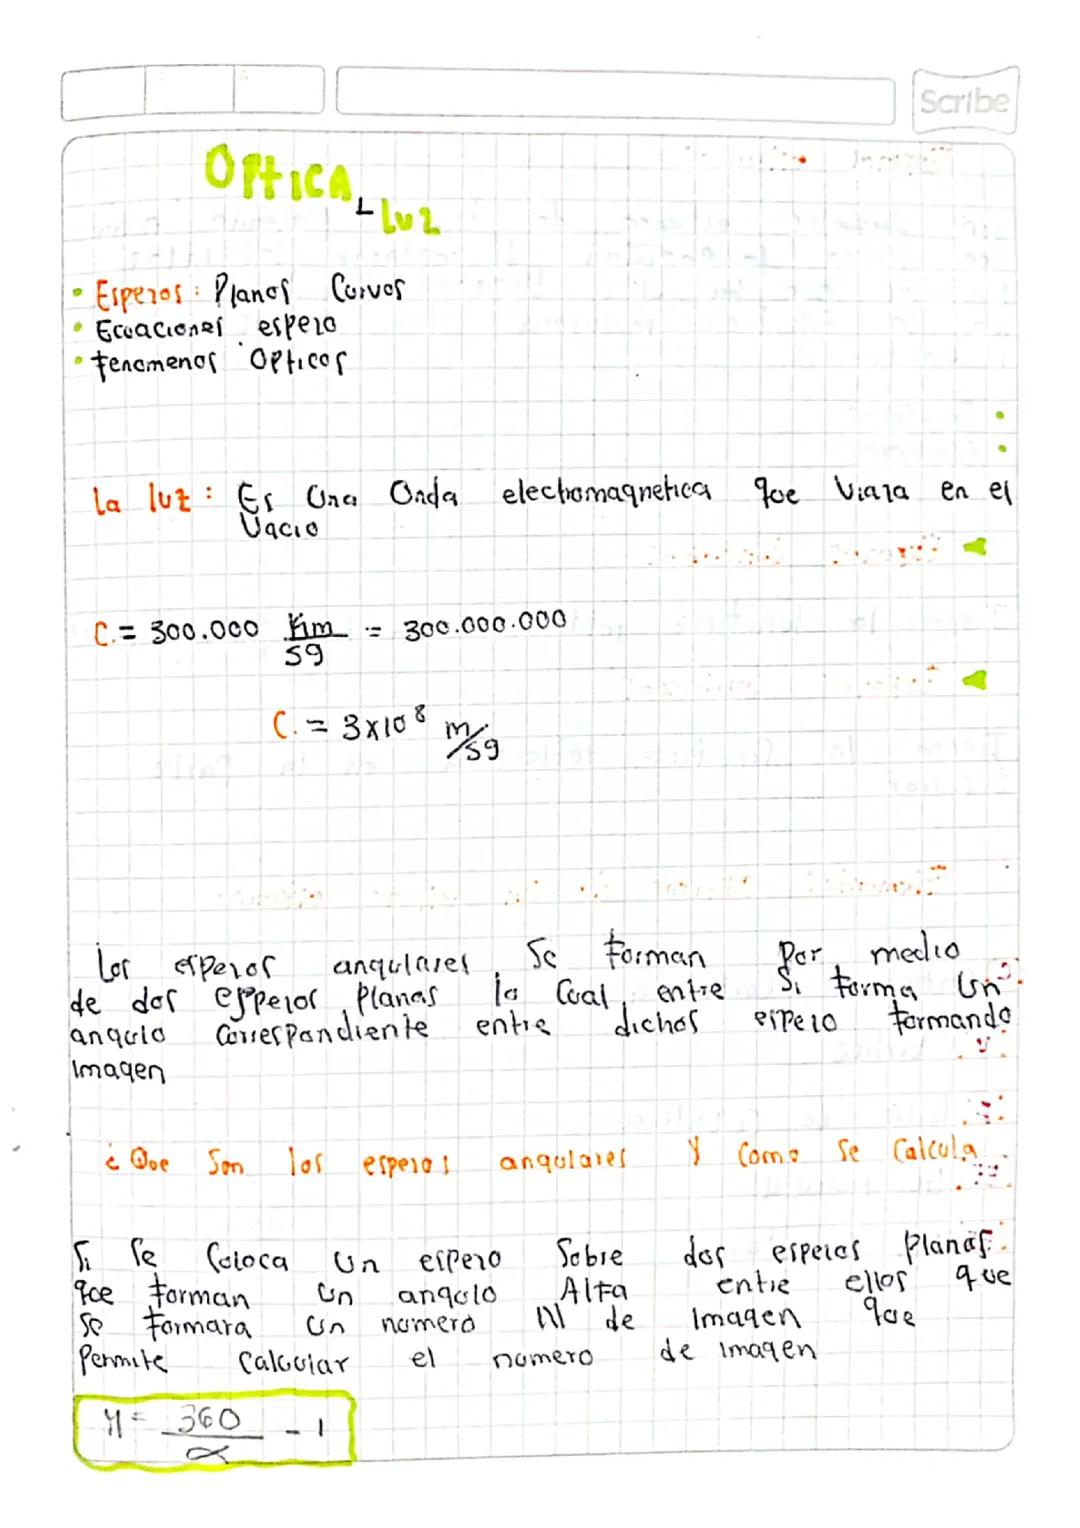 Scribe
OPtICA
Luz
• Esperos: Planos Curvos
• Ecuaciones espero
• fenomenos Opticos
La luz: Es Una Onda electromagnetica que Viaza en el
Vacio
C. = 300.000 Km/sg = 300.000.000
C. = 3x10⁸ m/sg
Los esperos angulares Se forman Por medio
de dos esperos Planos lo Cual, entre Si forma Un
angulo Correspondiente entre dichos espero formando
Imagen
¿Que Son los esperos angulares Y Como Se Calcula
Si Se Coloca Un espero Sobre dos esperos Planos
que forman Un angulo Alfa entre ellos que
se formara Un numero N de Imagen que
Permite Calcular el numero de imagen
N = 360/∝ - 1